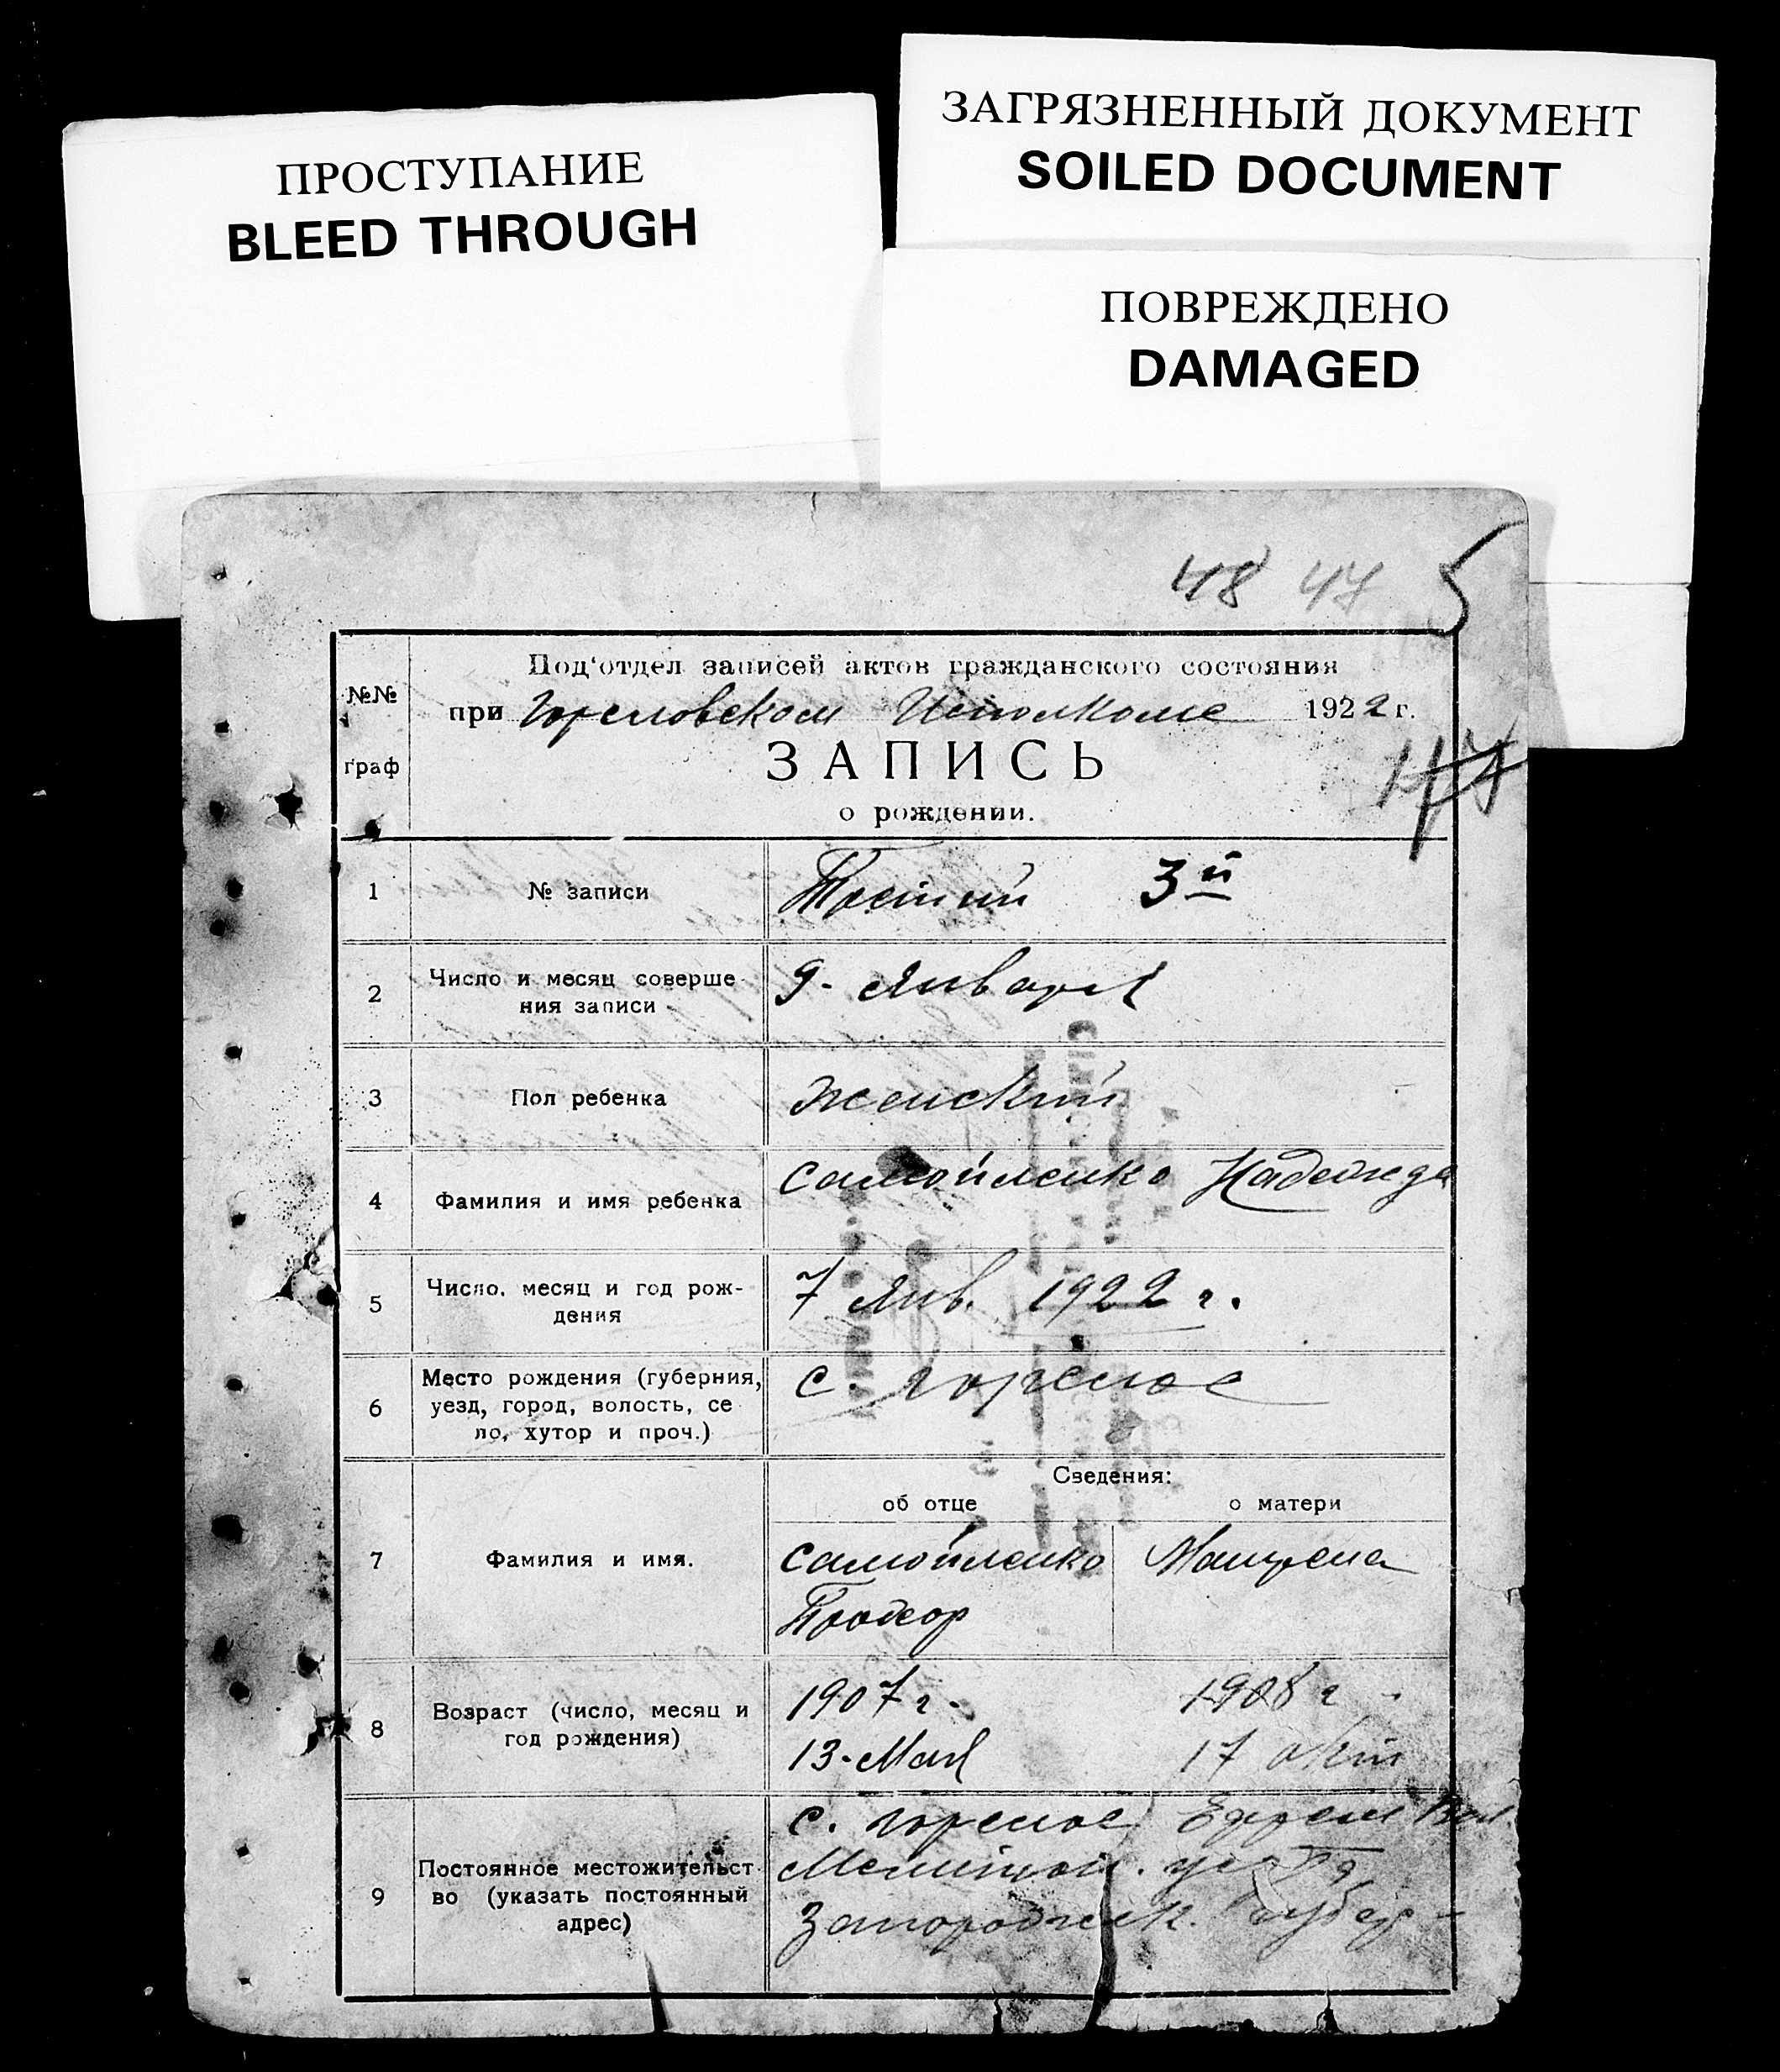 ПРОСТУПАНИЕ
BLEED THROUGH
ЗАГРЯЗНЕННЫЙ ДОКУМЕНТ
SOILED DOCUMENT
ПОВРЕЖДЕНО
DAMAGED
48 47
№№ граф
Под‘отдел записей актов гражданского состояния
при Гореловском Исполкоме 1922 г.
ЗАПИСЬ
о рождении.
47
1 № записи Третий 3й
2 Число и месяц соверше
ния записи 9 - Января
3 Пол ребенка женский
4 Фамилия и имя ребенка Самойленко Надежда
5 Число, месяц и год рож-
дения 7 Янв. 1922 г.
6 Место рождения (губерния,
уезд, город, волость, се
ло, хутор и проч.) с. Горелое
Сведения:
об отце о матери
7 Фамилия и имя. Самойленко Матрена
8 Возраст (число, месяц и
год рождения) 1907 г. 1908 г
13 - Мая 17 окт
9 Постоянное местожительст
во (указать постоянный
адрес) с. Горелое Ефрем Вол.
Мелитоп. уезд
Запорожск. губер -